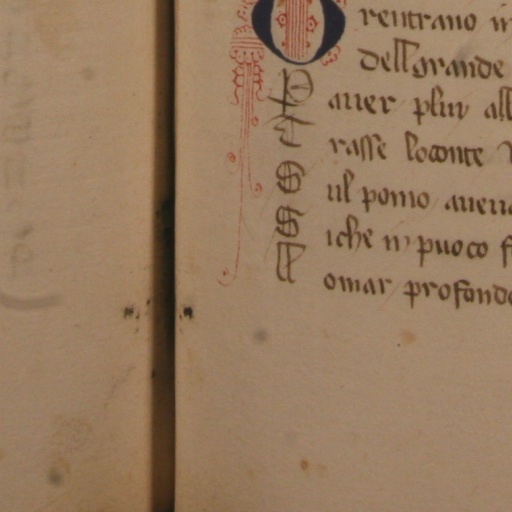 O rentrano in
dell grande
P auer plu all
T rasse loconte
S ul pomo aueua
S iche in puoco f
A omar profondo